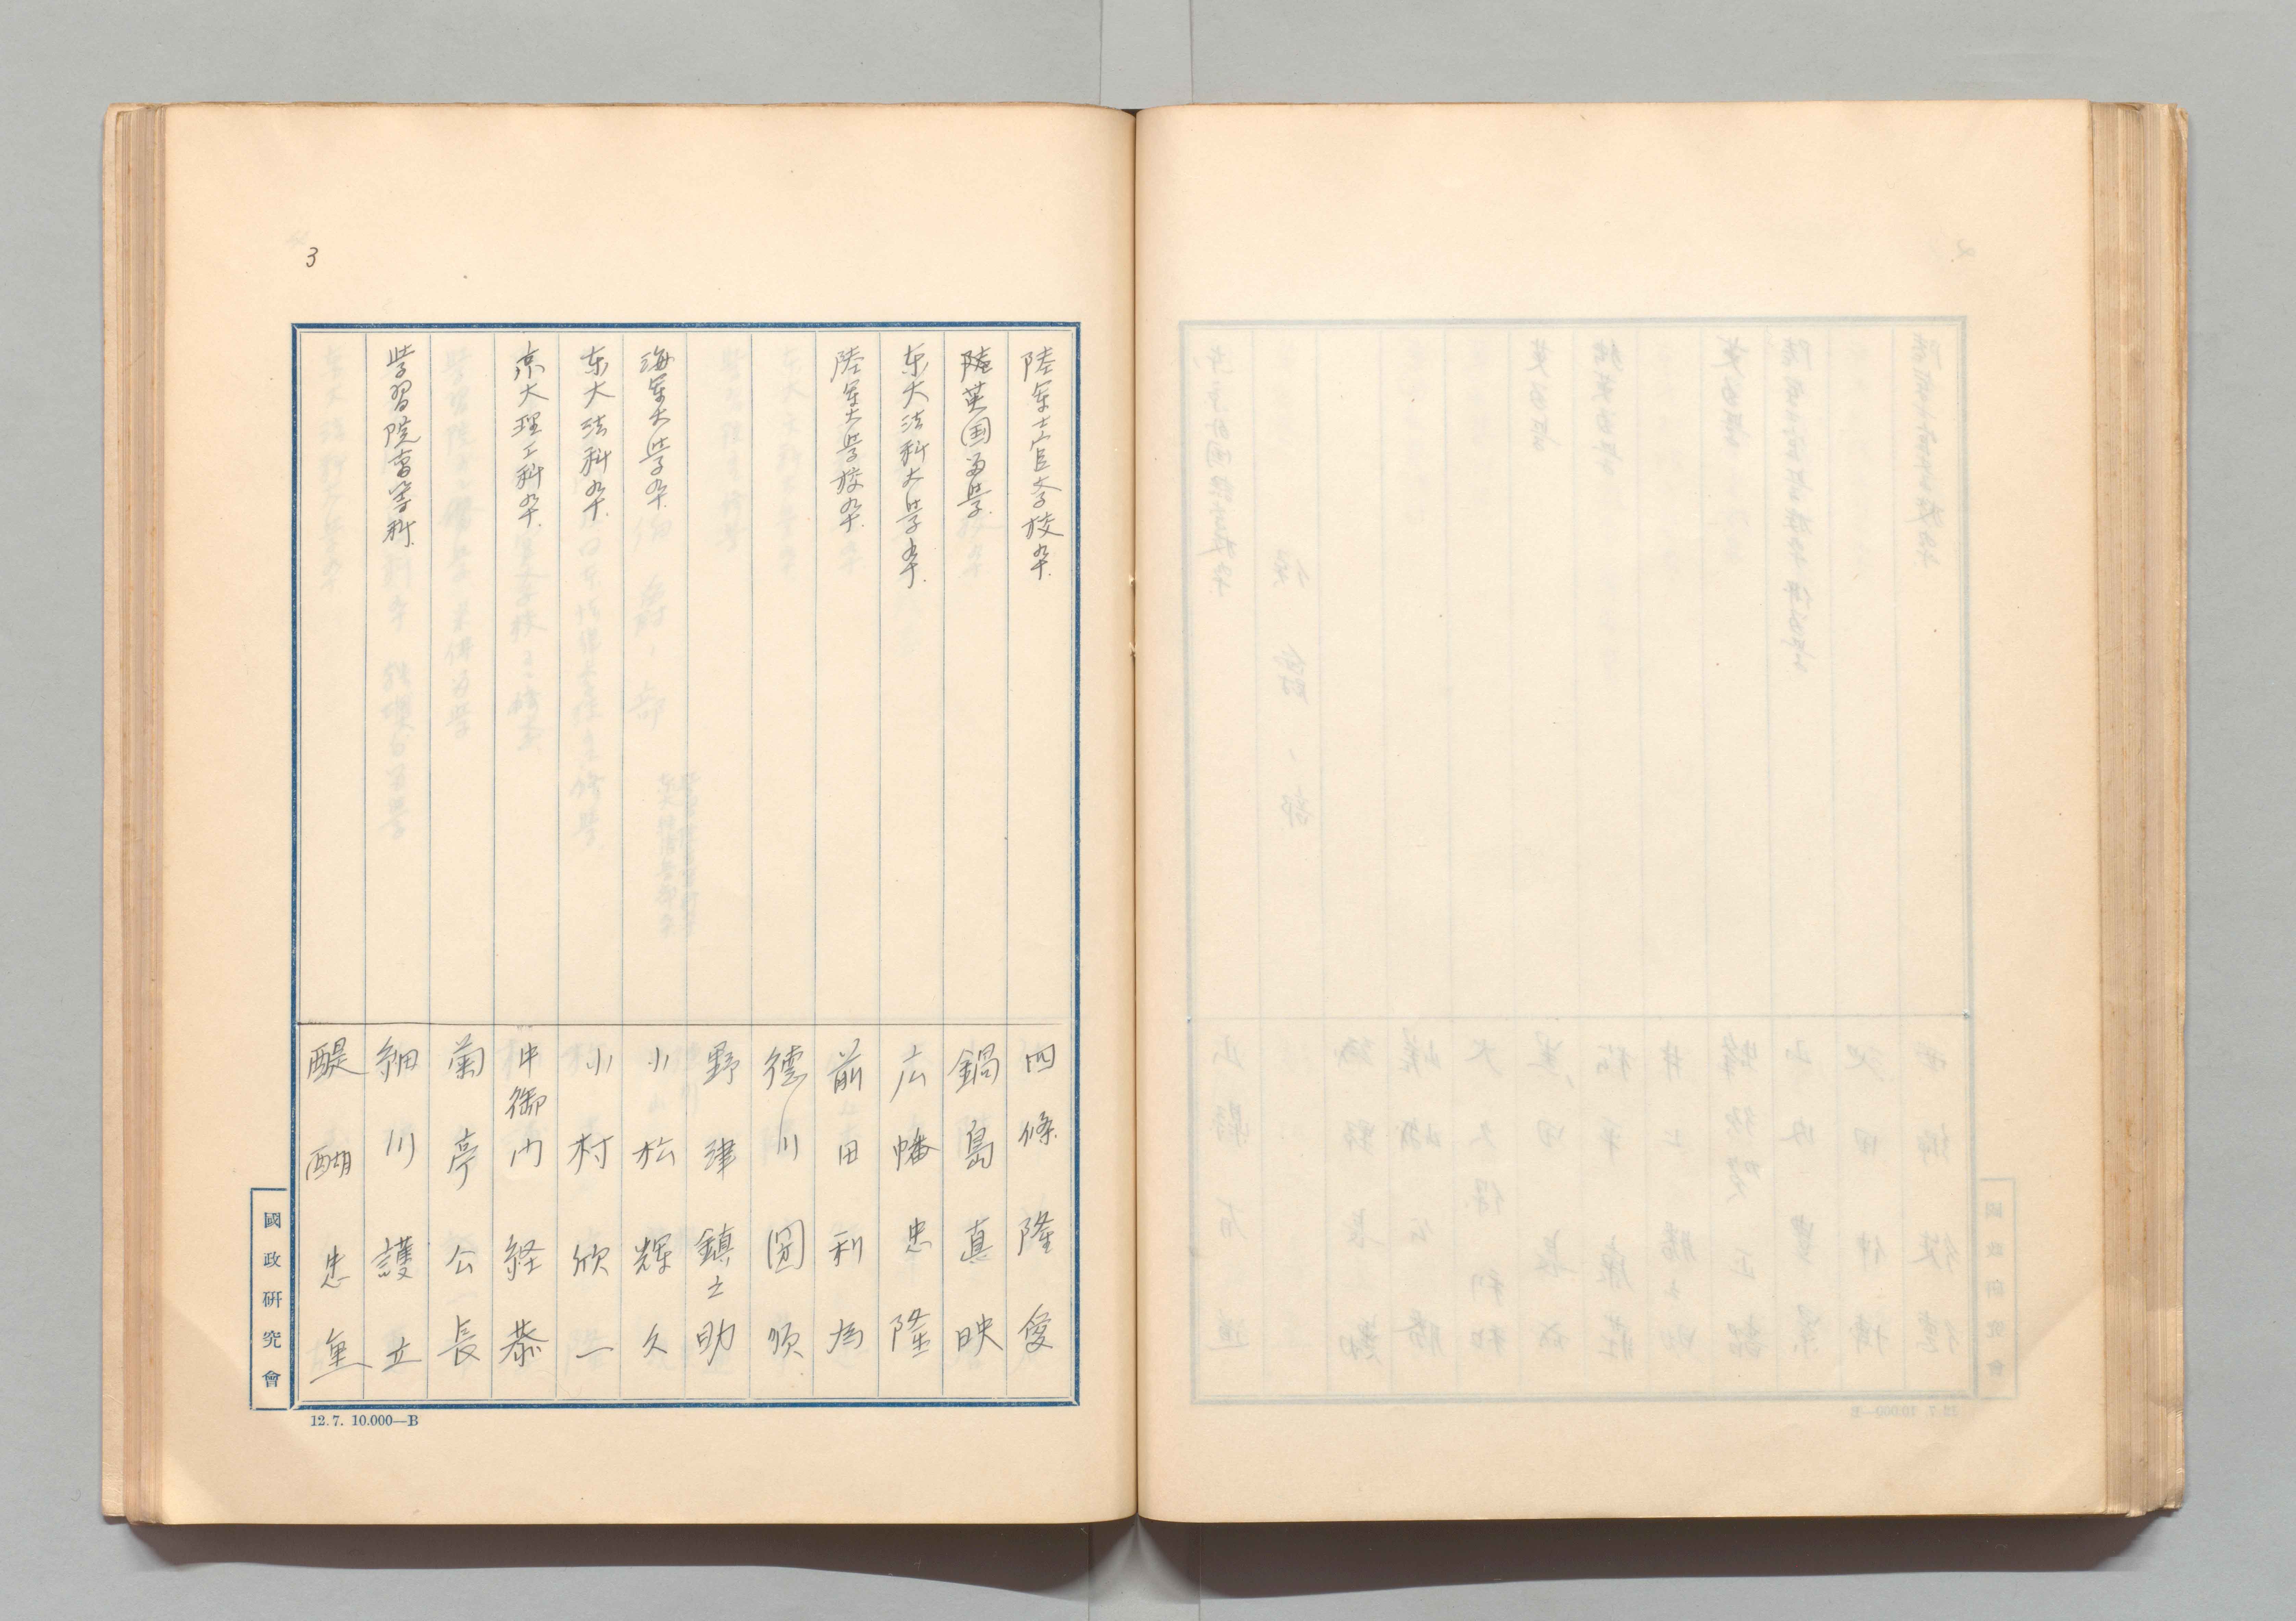 3
陸軍士官学校卒.
四條隆愛
陸英国留学.
鍋島直映
東大法科大学卒.
広幡忠隆
陸軍大学校卒.
前田利為
徳川圀順
野津鎮之助
海軍大学卒.
小松輝久
東大法科卒.
小村欣一
京大理工科卒.
中御門経恭
菊亭公長
学習院高等学科.
細川護立
醍醐忠重
國政研究會
12.7. 10.000—B